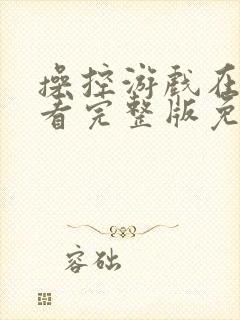 操控游戏在
看完整版免
容础